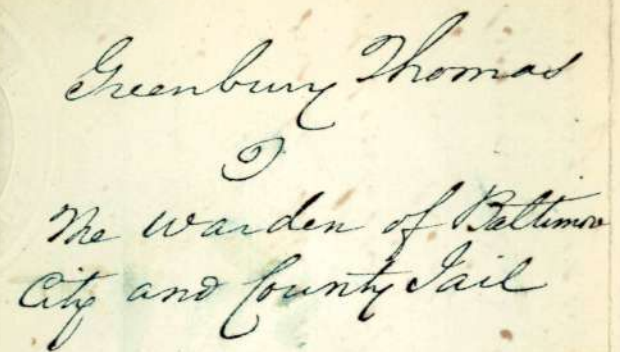 Greenbury Thomas
v
The Warden of Baltimore
City and County Jail